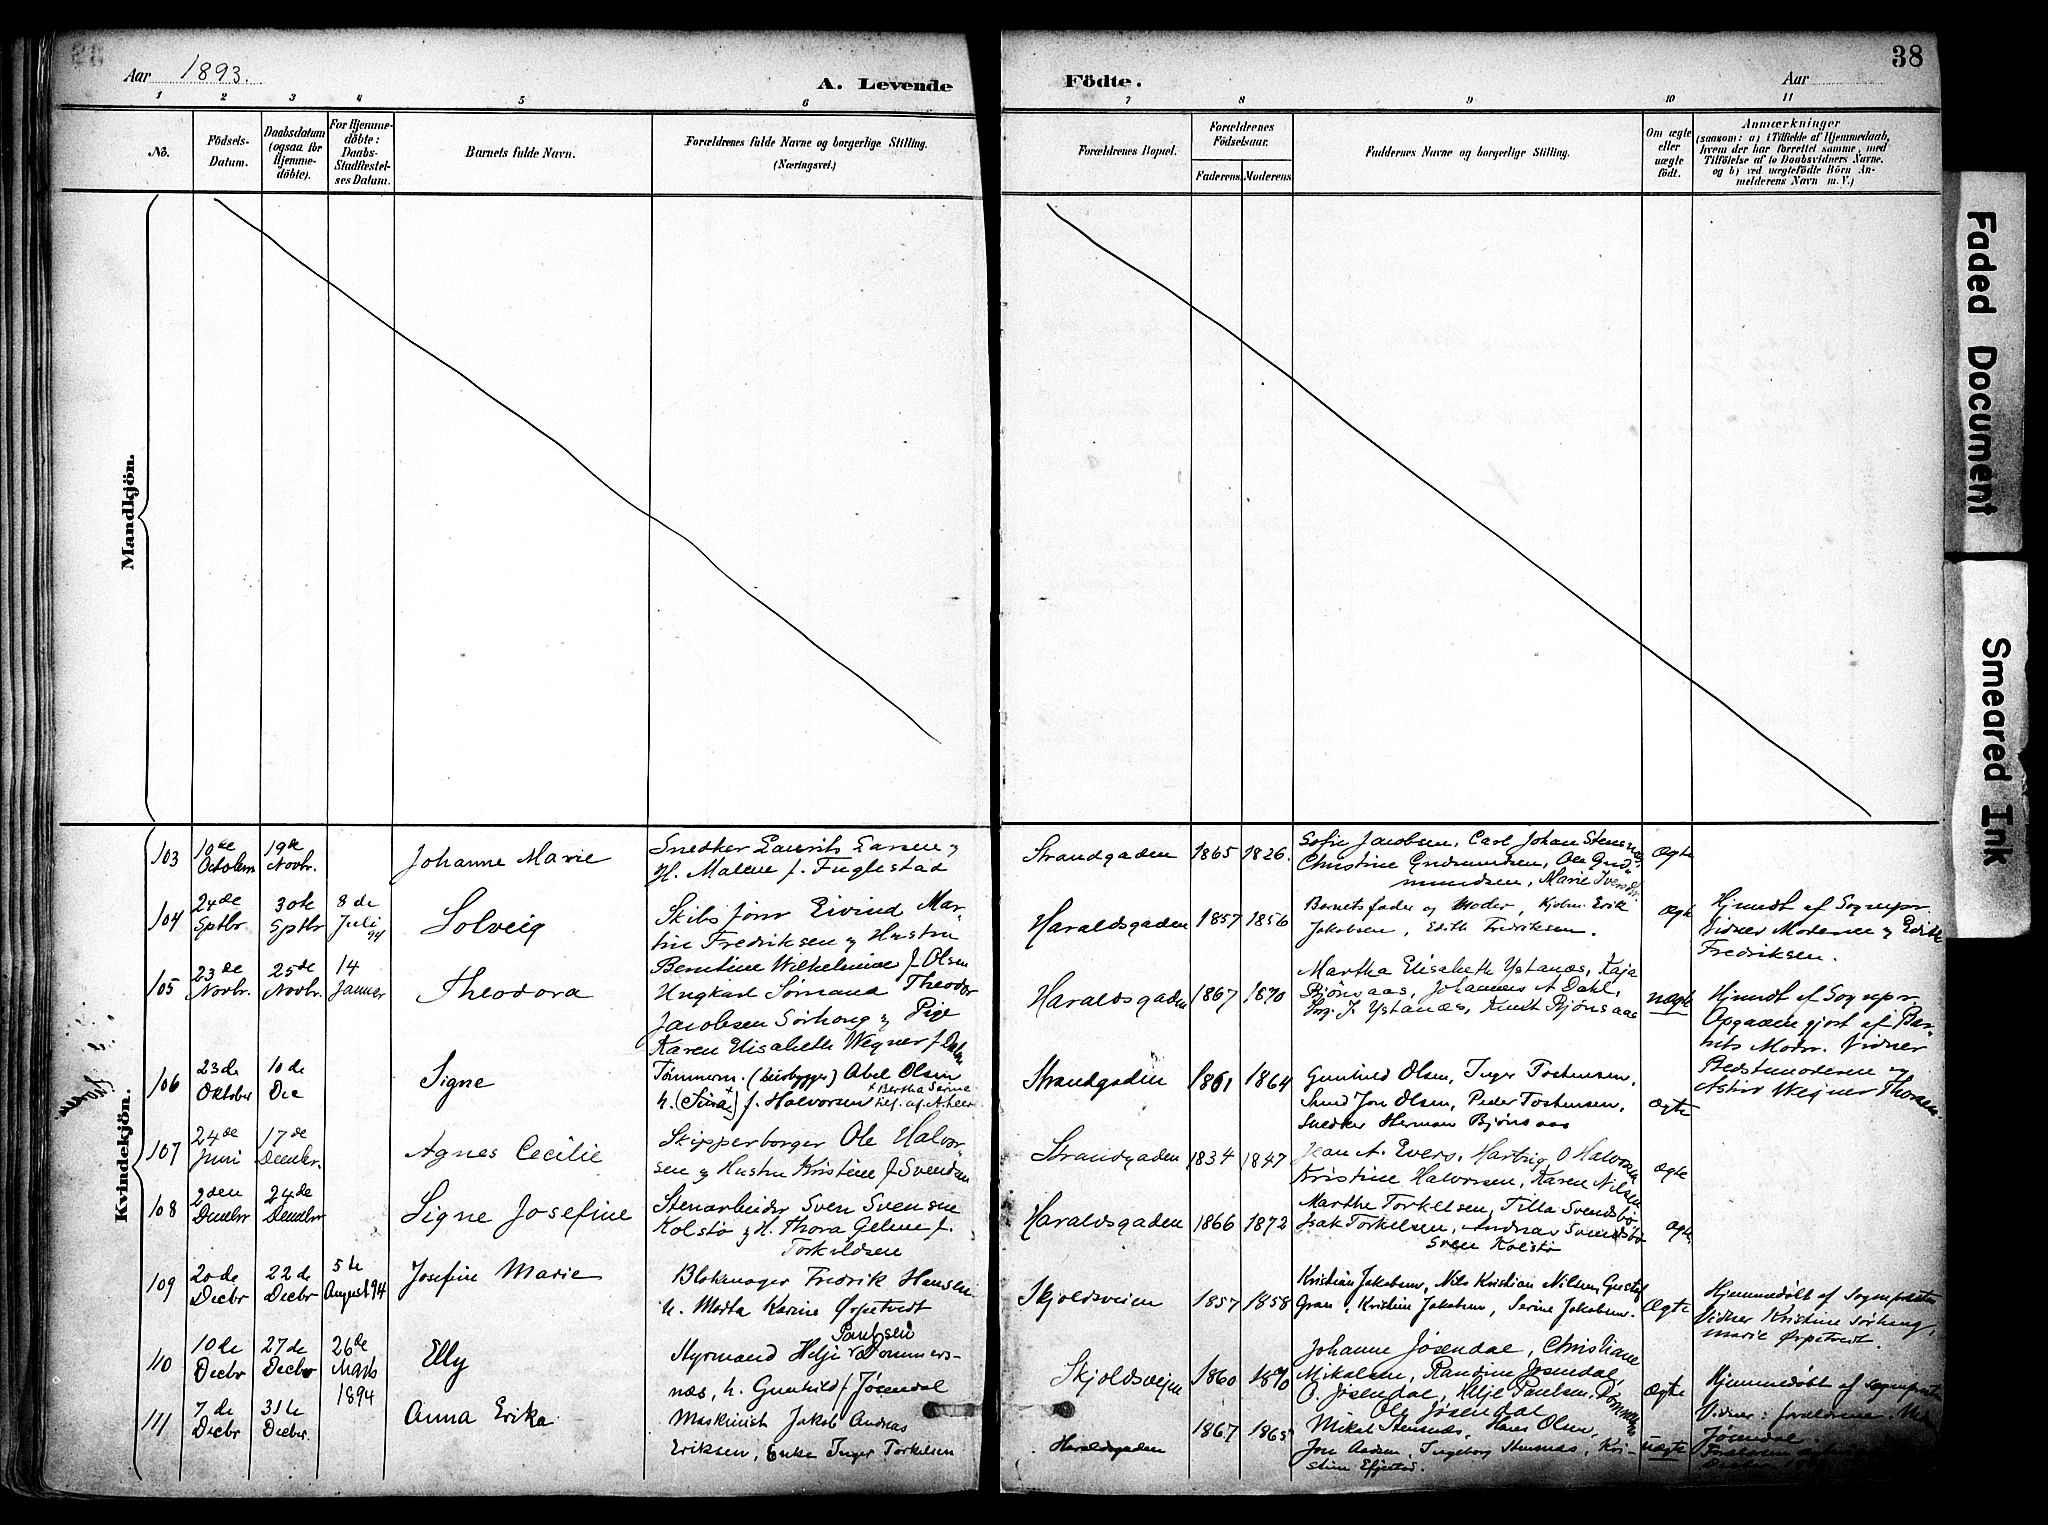 Aar 1893.
A. Levende
Födte.
Aar
38
1 2 3 4 5 6 7 8 9 10 11
No.
Födsels-Datum.
Daabsdatum (ogsaa for Hjemme-döbte).
For Hjemme-döbte: Daabs-Stadfæstel-ses Datum.
Barnets fulde Navn.
Forældrenes fulde Navne og borgerlige Stilling. (Næringsvei.)
Forældrenes Bopæl.
Forældrenes Födselsaar.
Faderens. Moderens.
Faddernes Navne og borgerlige Stilling.
Om ægte eller uægte födt.
Anmærkninger
(saasom: a) i Tilfælde af Hjemmedaab,
hvem der har forrettet samme, med
Tilföielse af to Daabsvidners Navne,
og b) ved uægtefödte Börn An-
melderens Navn m. V.)
Mandkjön.
Kvindekjön.
103 19de Novbr. Johanne Marie
Snedker Laurits Larsen og
H. Malene f. Fuglestad
Strandgaden 1865 1826.
Sofie Jacobsen, Carl Johan
Christine Gudmundsen, Ole Gud-
mundsen, Marie
Ægte
104 24de Sptbr 30te Sptbr 8de Juli 94 Solveig
Skibsförer Eivind Mar-
tin Fredriksen og Hustru
Bentine Wilhelmine f. Olsen
Haraldsgaden 1857 1856
Barnets fader og Moder, Erik
Jakobsen, Edith Fredriksen.
Ægte
Hjmdt af Sognepr.
Vidner Moderen og Edith
Fredriksen.
105 23de Novbr. 25de Novbr. 14 Januar Theodora
Ungkarl Sömand Theodor
Jacobsen Sörhoug og Pige
Karen Elisabeth Wegner f.
Haraldsgaden 1867 1870
Martha Elisabeth Ystanæs, Kaja
Björnsaas, Johannes A Dahl,
J. Ystanæs, Knut Björnsaas
uægte
Hjmdt af Sognepr.
Opgaven gjort af Bar-
nets Moder. Vidner
Bedstemoderen og
Astrid Wegner Thorsen.
106 23de Oktober 10de Dec Signe
Tömmerm. (Huisbygger) Abel Olsen
h. (Sina) f. Halvorsen
Bertha Serine
Strandgaden 1861 1864
Gunhild Olsen, Inger Tostensen,
Smed Jon Olsen, Peder Tostensen,
Snedker Herman Björnsaas
Ægte
107 24de Juni 17de Decmbr. Agnes Cecilie
Skipperborger Ole Halvor-
sen og Hustru Kristine f. Svendsen
Strandgaden 1834 1847
Jean A. Evers, Hartvig O Halvorsen
Kristine Halvorsen, Karen Nilsen
Ægte
108 2den Decmbr 24de Decmbr Signe Josefine
Stenarbeider Sven Svensen
Kolstø og H. Thora Geline f.
Torkildsen
Haraldsgaden 1866 1872
Marthe Torkelsen, Tilla Svendsbö
Isak Torkelsen, Andreas Svendsbö
Sven Kolstø
Ægte
109 20de Decbr 22de Decbr 5te August 94 Josefine Marie
Blokmager Fredrik Hansen
h. Marta Karine Ørpetvedt
Skjoldsveien 1857 1858
Kristian Jakobsen, Nils Kristian Nilsen, Gustaf
Gran, Kristine Jakobsen, Serine Jakobsen.
Ægte
Hjemmedöbt af Sognepræsten
Vidner Kristine Sörhoug,
Marie Ørpetvedt.
110 10de Decbr 27de Decbr 26de Marts 1894 Elly
Styrmand Helje Paulsen Dommers-
næs, h. Gunhild f. Jösendal
Skjoldsveien 1860 1870
Johanne Jøsendal, Christiane
Mikalsen, Randine Jøsendal,
O. Jøsendal, Helje Paulsen,
Ole Jøsendal
Ægte
Hjemmedöbt af Sognepræsten
Vidner: forældrene.
Jøsendal.
111 7de Decbr 31te Decbr. Anna Erika
Maskinist Jakob Andreas
Eriksen, Enke Inger Torkelsen
Haraldsgaden 1867 1865
Mikal Stensnæs, Hans Olsen,
Jon Ingeborg Stensnæs, Kri-
stine
uægte
Faded Document
Smeared Ink